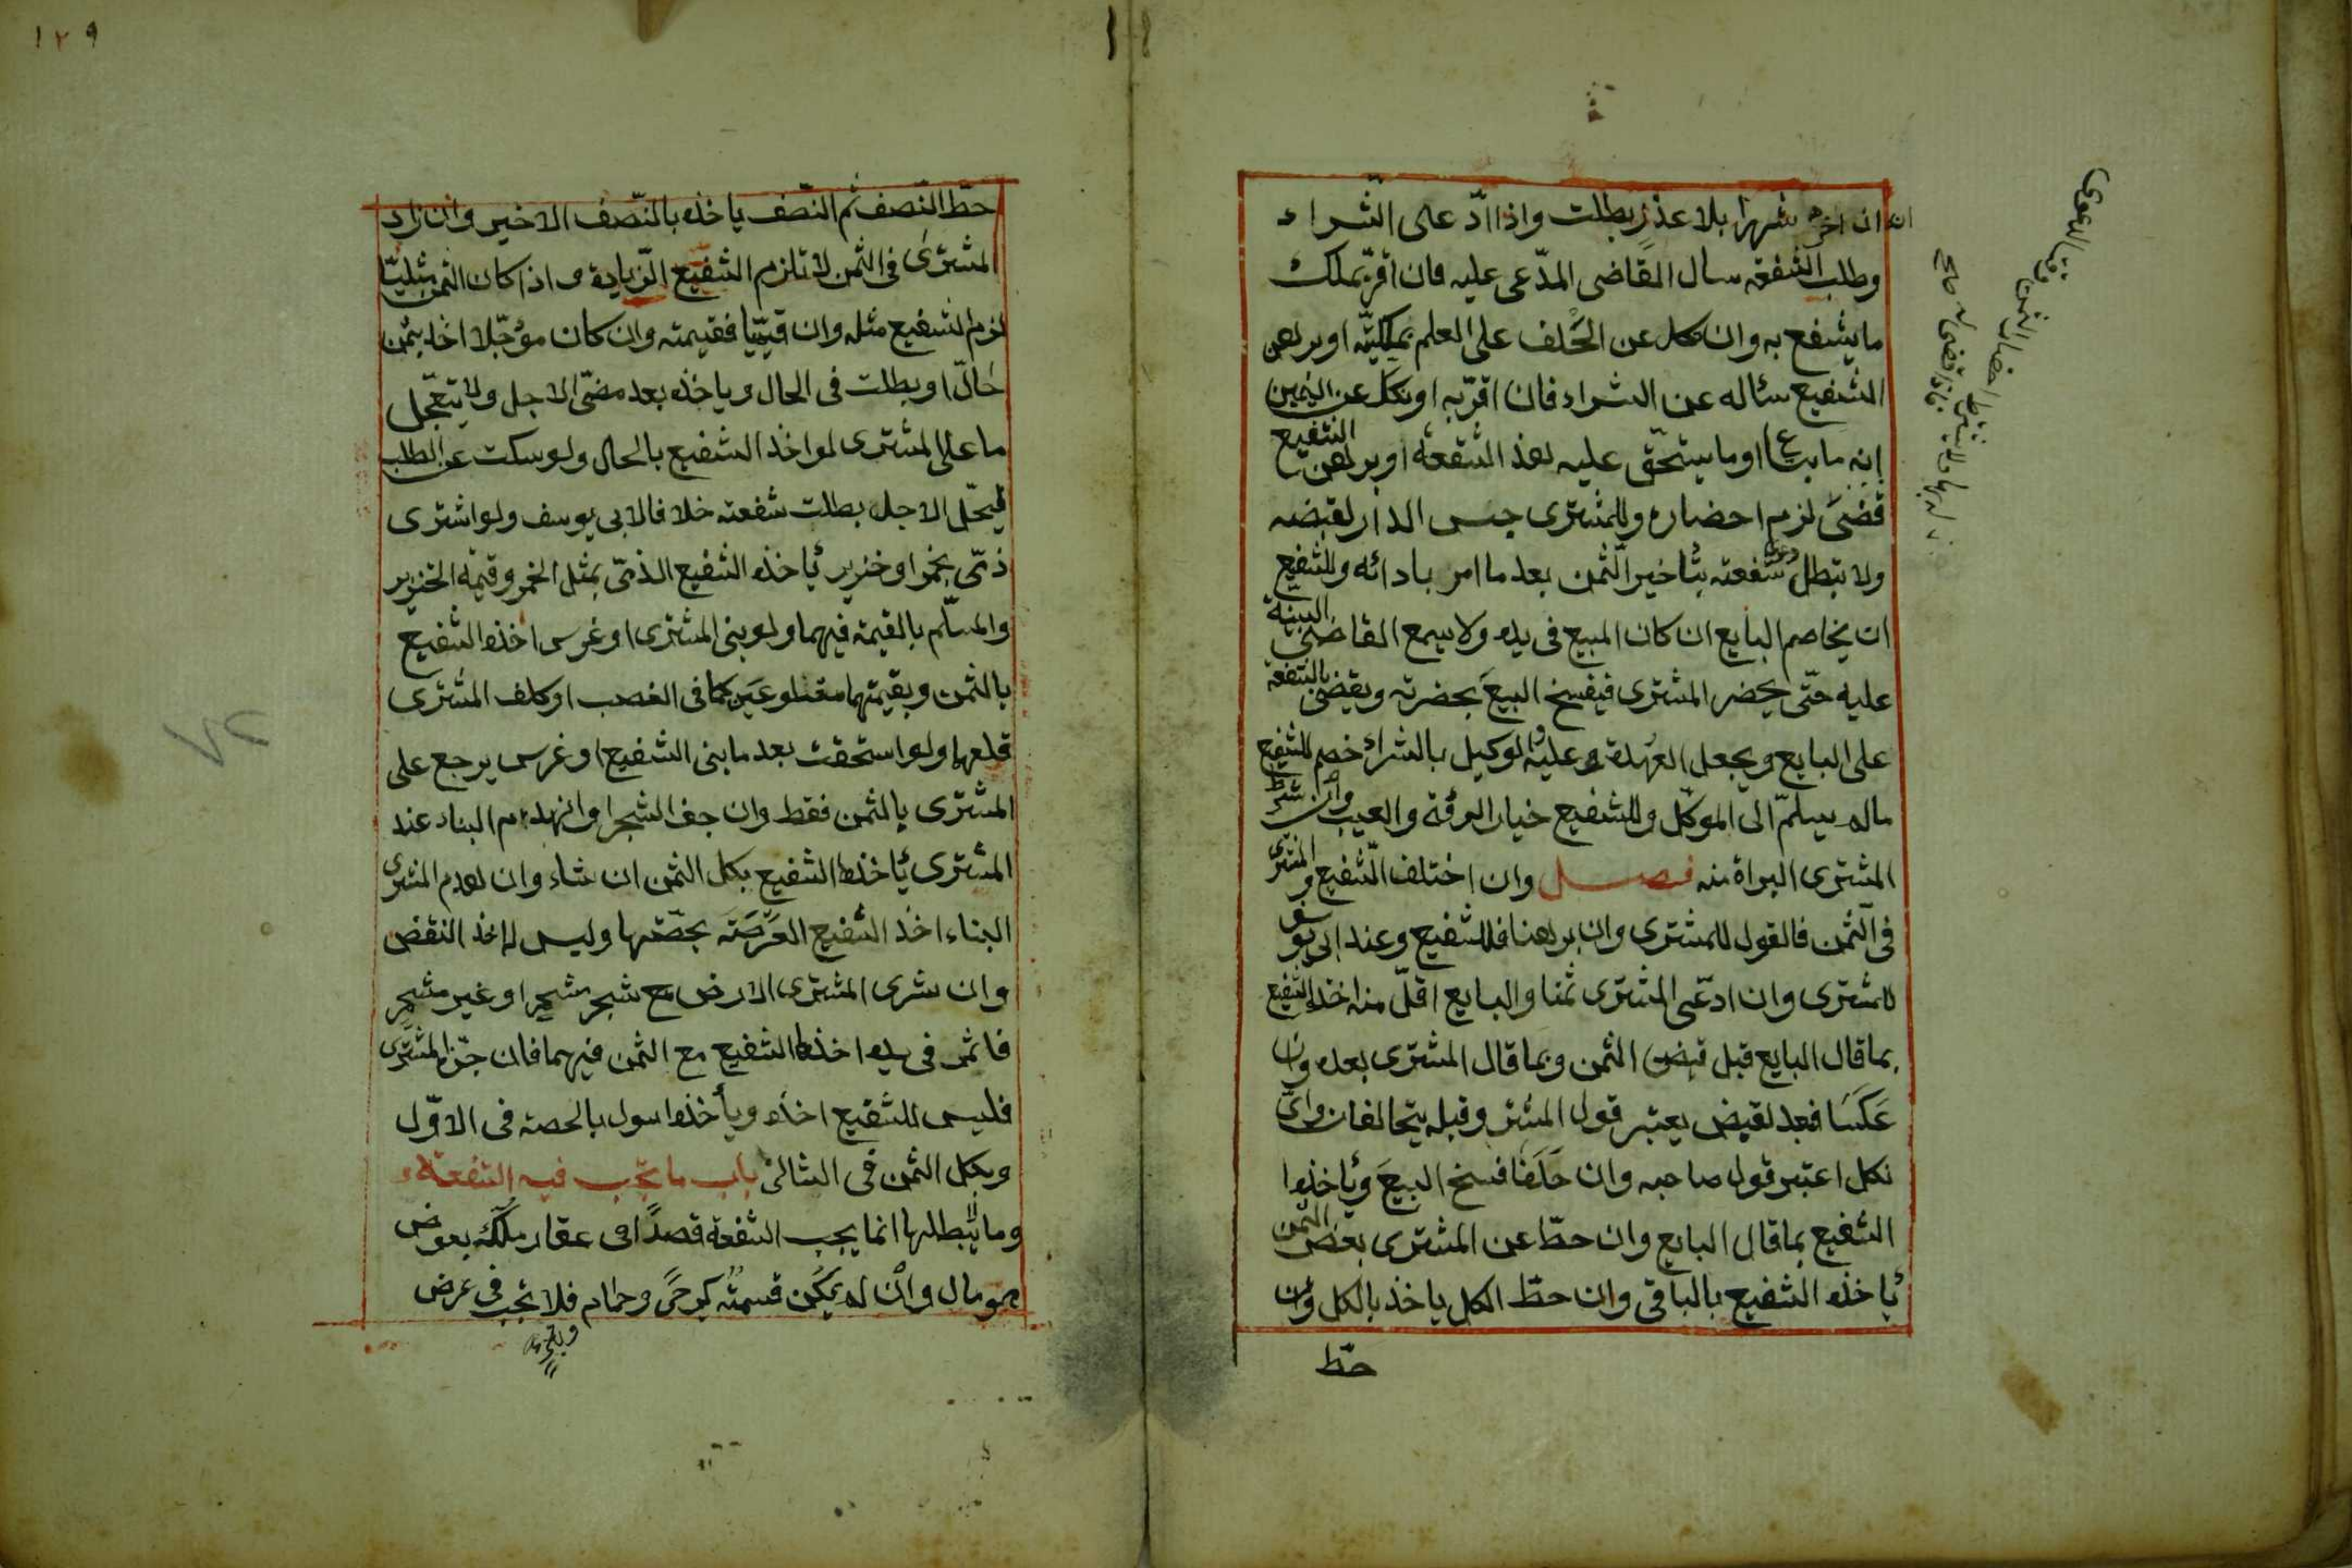 ان اخره شهرا بلا عذر بطلت واذا ادّ على الشراء
وطلب الشفعة سال القاضى المدّعى عليه فان اقرّ بملك
ما يشفع به وان نكل عن الحَلف على العلم بملكيّته او برهن
الشفيع سئاله عن الشراء فان اقرّ به او نكل عن اليمين
إنه ما ابتاع او ما يستحّق عليه هذ الشفعة او برهن الشفيع
قضىَ لزم احضاره وللمشترى حبس الدار لقبضه
ولا تبطل شفعته بتاخير الثمن بعد ما امر بادائه وللشفيع
ان يخاصم البايع ان كان المبيع فى يده ولا يسمع القاضى البينة
عليه حتّى يحضر المشترى فيفسخ البيعَ بحضرته ويقضى بالشفعة
على البايع ويجعل العهدة عليه والوكيل بالشراء خصم للشفيع
ماله يسلمّ الى الموكّل وللشفيع خيار الرؤية والعيب وان شرط
المشترى البراة منه فصل وان اختلف الشفيع والمشترى
فى الثمن فالقول للمشترى وان برهنا فللشفيع وعند ابى يوسف
للمشترى وان ادّعى المشترى ثمنا والبايع اقلّ منه اخذه الشفيع
بما قال البايع قبل قبض الثمن وبما قال المشترى بعده وان
عَكسَا فبعد لقبض يعتبر قول المشتر وقبله يتحالفان واىّ
نكل اعتبر قول صاحبه وان حَلَفا فسخ البيعَ وياخذوا
الشفيع بما قال البايع وان حطّ عن المشترى بعض الثمن
ياخذه الشفيع بالباقى وان حطّ الكل ياخذ بالكل وان
حطّ
١٢٩
حطّ النّصف ثم النّصف ياخذه بالنّصف الاخير وان زاد
المشترى فى الثمن لا تلزم الشفيع الّزيادة واذا كان الثمن مثليّا
لزم الشفيع مثله وان قيميّا فقيمته وان كان مؤجّلا اخذ بثمن
حَالّ او يطلب فى الحال وياخذه بعد مضىّ الاجل ولا يتعّجل
ما على المشترى لو اخذ الشفيع بالحال ولو سكت عن الطلب
ليحّل الاجل بطلت شفعته خلافا لابى يوسف ولو اشترى
ذمّى بخمر او خنزير ياخذه الشفيع الذمّى بمثل الخمر وقيمة الخنزير
والمسلّم بالقيمة فيهما ولو بنى المشترى او غرس اخذه الشفيع
بالثمن وبقيمتهما مقلوعَين كما فى الغصب او كلف المشترى
قلعهما ولو استحقت بعد ما بنى الشفيع او غرس يرجع على
المشترى بالثمن فقط وان جف الشجر او انهدم البناء عند
المشترى ياخذها الشفيع بكل الثمن ان شاء وان هدم المشترى
البناء اخذ الشفيع العَرْصَة بحصّتها وليس له اخذ النقض
وان شرى المشترى الارض مع شجر مثمر او غير مثمرٍ
فاثمر فى يده اخذها الشفيع مع الثمن فيهما فان جزّ المشترى
فليس للشفيع اخذه ويأخذ ما سواه بالحصة فى الاوّل
وبكل الثمن فى الثانى باب ما تجب فيه الشفعة
وما لا يبطلها انما يجب الشفعة قصدًا فى عقار مُلّك بعوض
هو مال وان لم يمكن قسمته كرحىً وحمام فلا تجب فى عرض